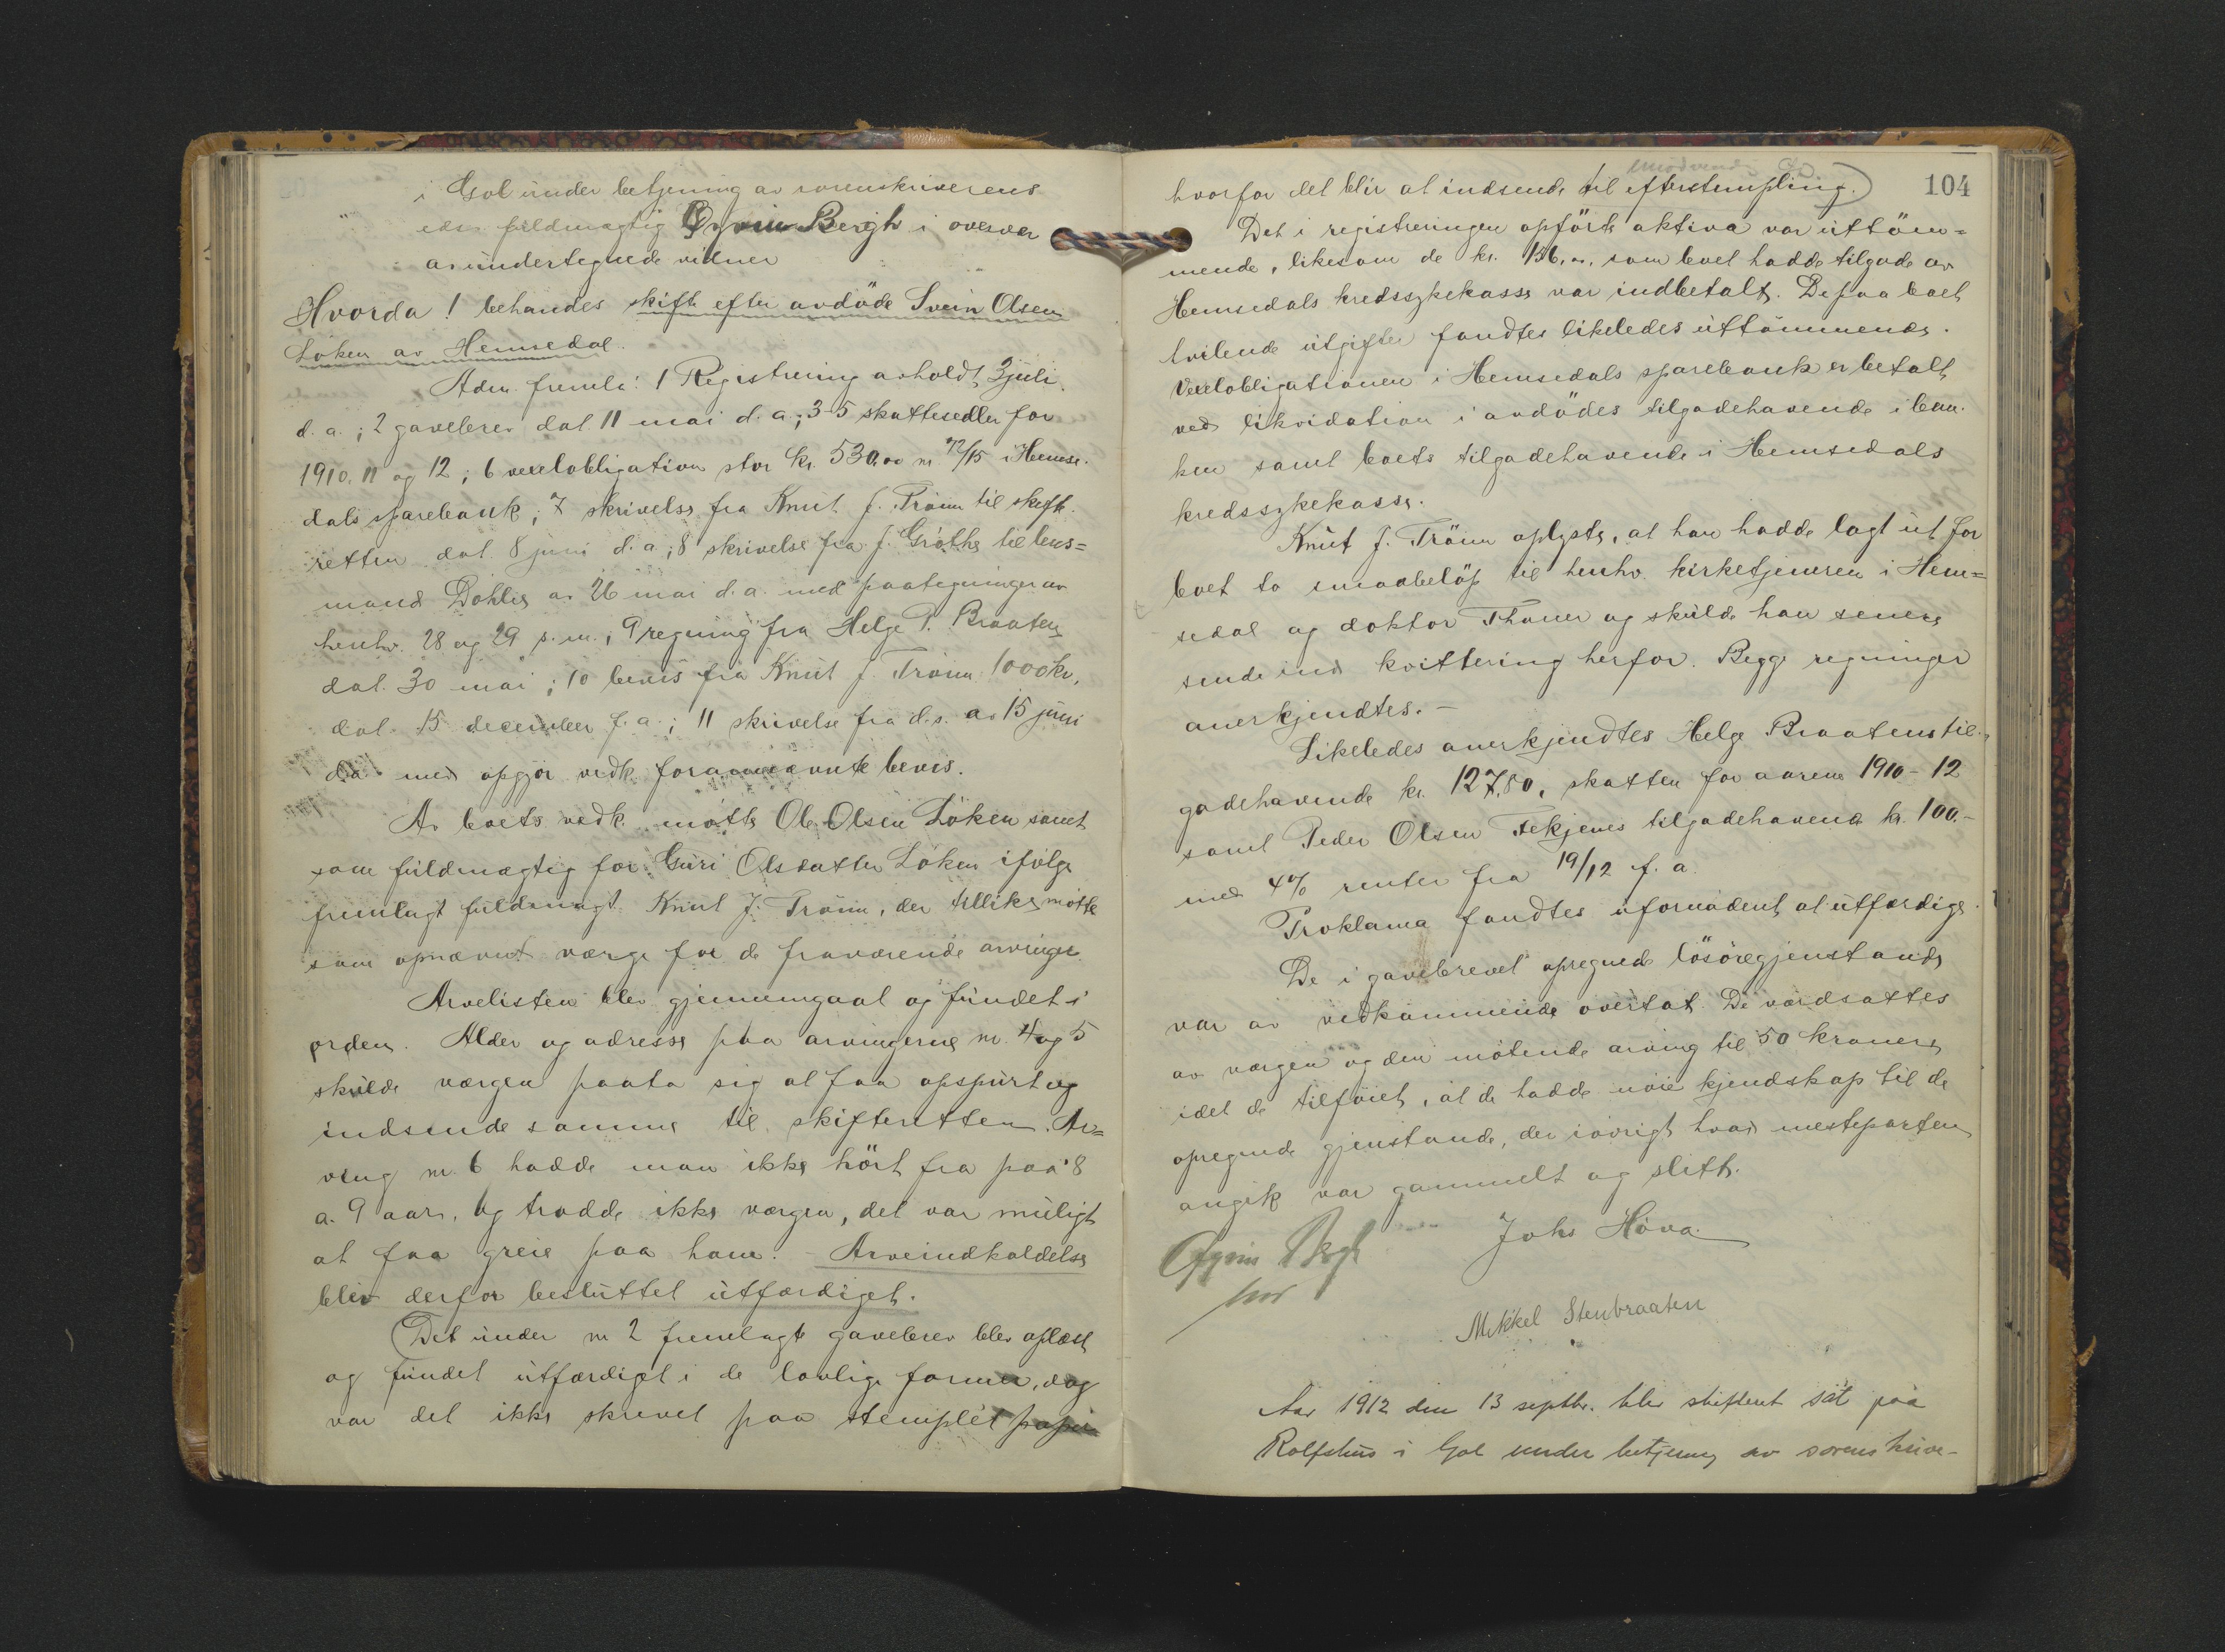 i Gol under betjening av sorenskriverens
eds. fuldmægtig Øyvin Bergh i overvær
av undertegnede vidner
Hvorda! behandles skifte efter avdöde Svein Olsen
Löken av Hemsedal.
Adm. fremla: 1 Registrering avholdt 3 juli
d. a.; 2 gavebrev dat. 11 mai d. a.; 3-5 skattesedler for
1910, 11 og 12; 6 vexelobligation stor kr. 530,00 nr 72/15 i Hemse-
dals sparebank; 7 skrivelse fra Knut J. Tröim til skifte-
retten dat. 8 juni d. a.; 8 skrivelse fra J. Gröthe til lens=
mand Döhlie av 26 mai d. a. med paategninger av
henhv. 28 og 29 s. m.; 9 regning fra Helge P. Braaten
dat. 30 mai; 10 bevis fra Knut J. Tröim 1000 kr.
dat. 15 december f. a.; 11 skrivelse fra d. s. av 15 juni
d. a. med opgjör vedk. forannævnte bevis.
Av boets vedk. mötte Ole Olsen Löken samt
som fuldmægtig for Guri Olsdatter Löken ifölge
fremlagt fuldmagt Knut J. Tröim, der tillike mötte
som opnævnt værge for de fraværende arvinger.
Arvelisten blev gjennemgaat og fundet i
orden. Alder og adresse paa arvingerne nr. 4 og 5
skulde værgen paata sig at faa opspurt og
indsende samme til skifteretten. Ar=
ving nr. 6 hadde man ikke hört fra paa 8
a. 9 aar, og trodde ikke værgen, det var muligt
at faa greie paa ham. - Arveindkaldelse
blev derfor besluttet utfærdiget.
(Det under nr 2 fremlagte gavebrev blev oplæst
og fundet utfærdiget i de lovlige former, dog
var det ikke skrevet paa stemplet papir
104
hvorfor det blir at indsende til efterstempling.)
Det i registreringen opförte aktiva var uttöm=
mende, likesom de kr. 156,00, som boet hadde tilgode av
Hemsedals kredssykekasse var indbetalt. De paa boet
hvilende utgifter fandtes likeledes uttömmende.
Vexelobligationen i Hemsedals sparebank er betalt
ved likvidation i avdödes tilgodehavende i ban-
ken samt boets tilgodehavende i Hemsedals
kredssykekasse.
Knut J. Tröim oplyste, at han hadde lagt ut for
boet to smaabelöp til henhv. kirketjeneren i Hem=
sedal og doktor Thaner og skulde han senere
sende ind kvittering herfor. Begge regninger
anerkjendtes. -
Likeledes anerkjendtes Helge Braatens til-
godehavende kr. 127,80, skatten for aarene 1910-12
samt Peder Olsen Fekjenes tilgodehavende kr. 100.-
med 4% renter fra 19/12 f. a.
Proklama fandtes ufornödent at utfærdige.
De i gavebrevet opregnede lösöregjenstande
var av vedkommende overtat. De værdsattes
av værgen og den mötende arving til 50 kroner,
idet de tilföiet, at de hadde nöie kjendskap til de
opregnede gjenstande, der iövrigt hvad mesteparten
angik var gammelt og slitt.
Øyvin Bergh
Johs Höva
Mikkel Stenbraaten
Aar 1912 den 13 septbr. blev skifteret sat paa
Rolfshus i Gol under betjening av sorenskrive-